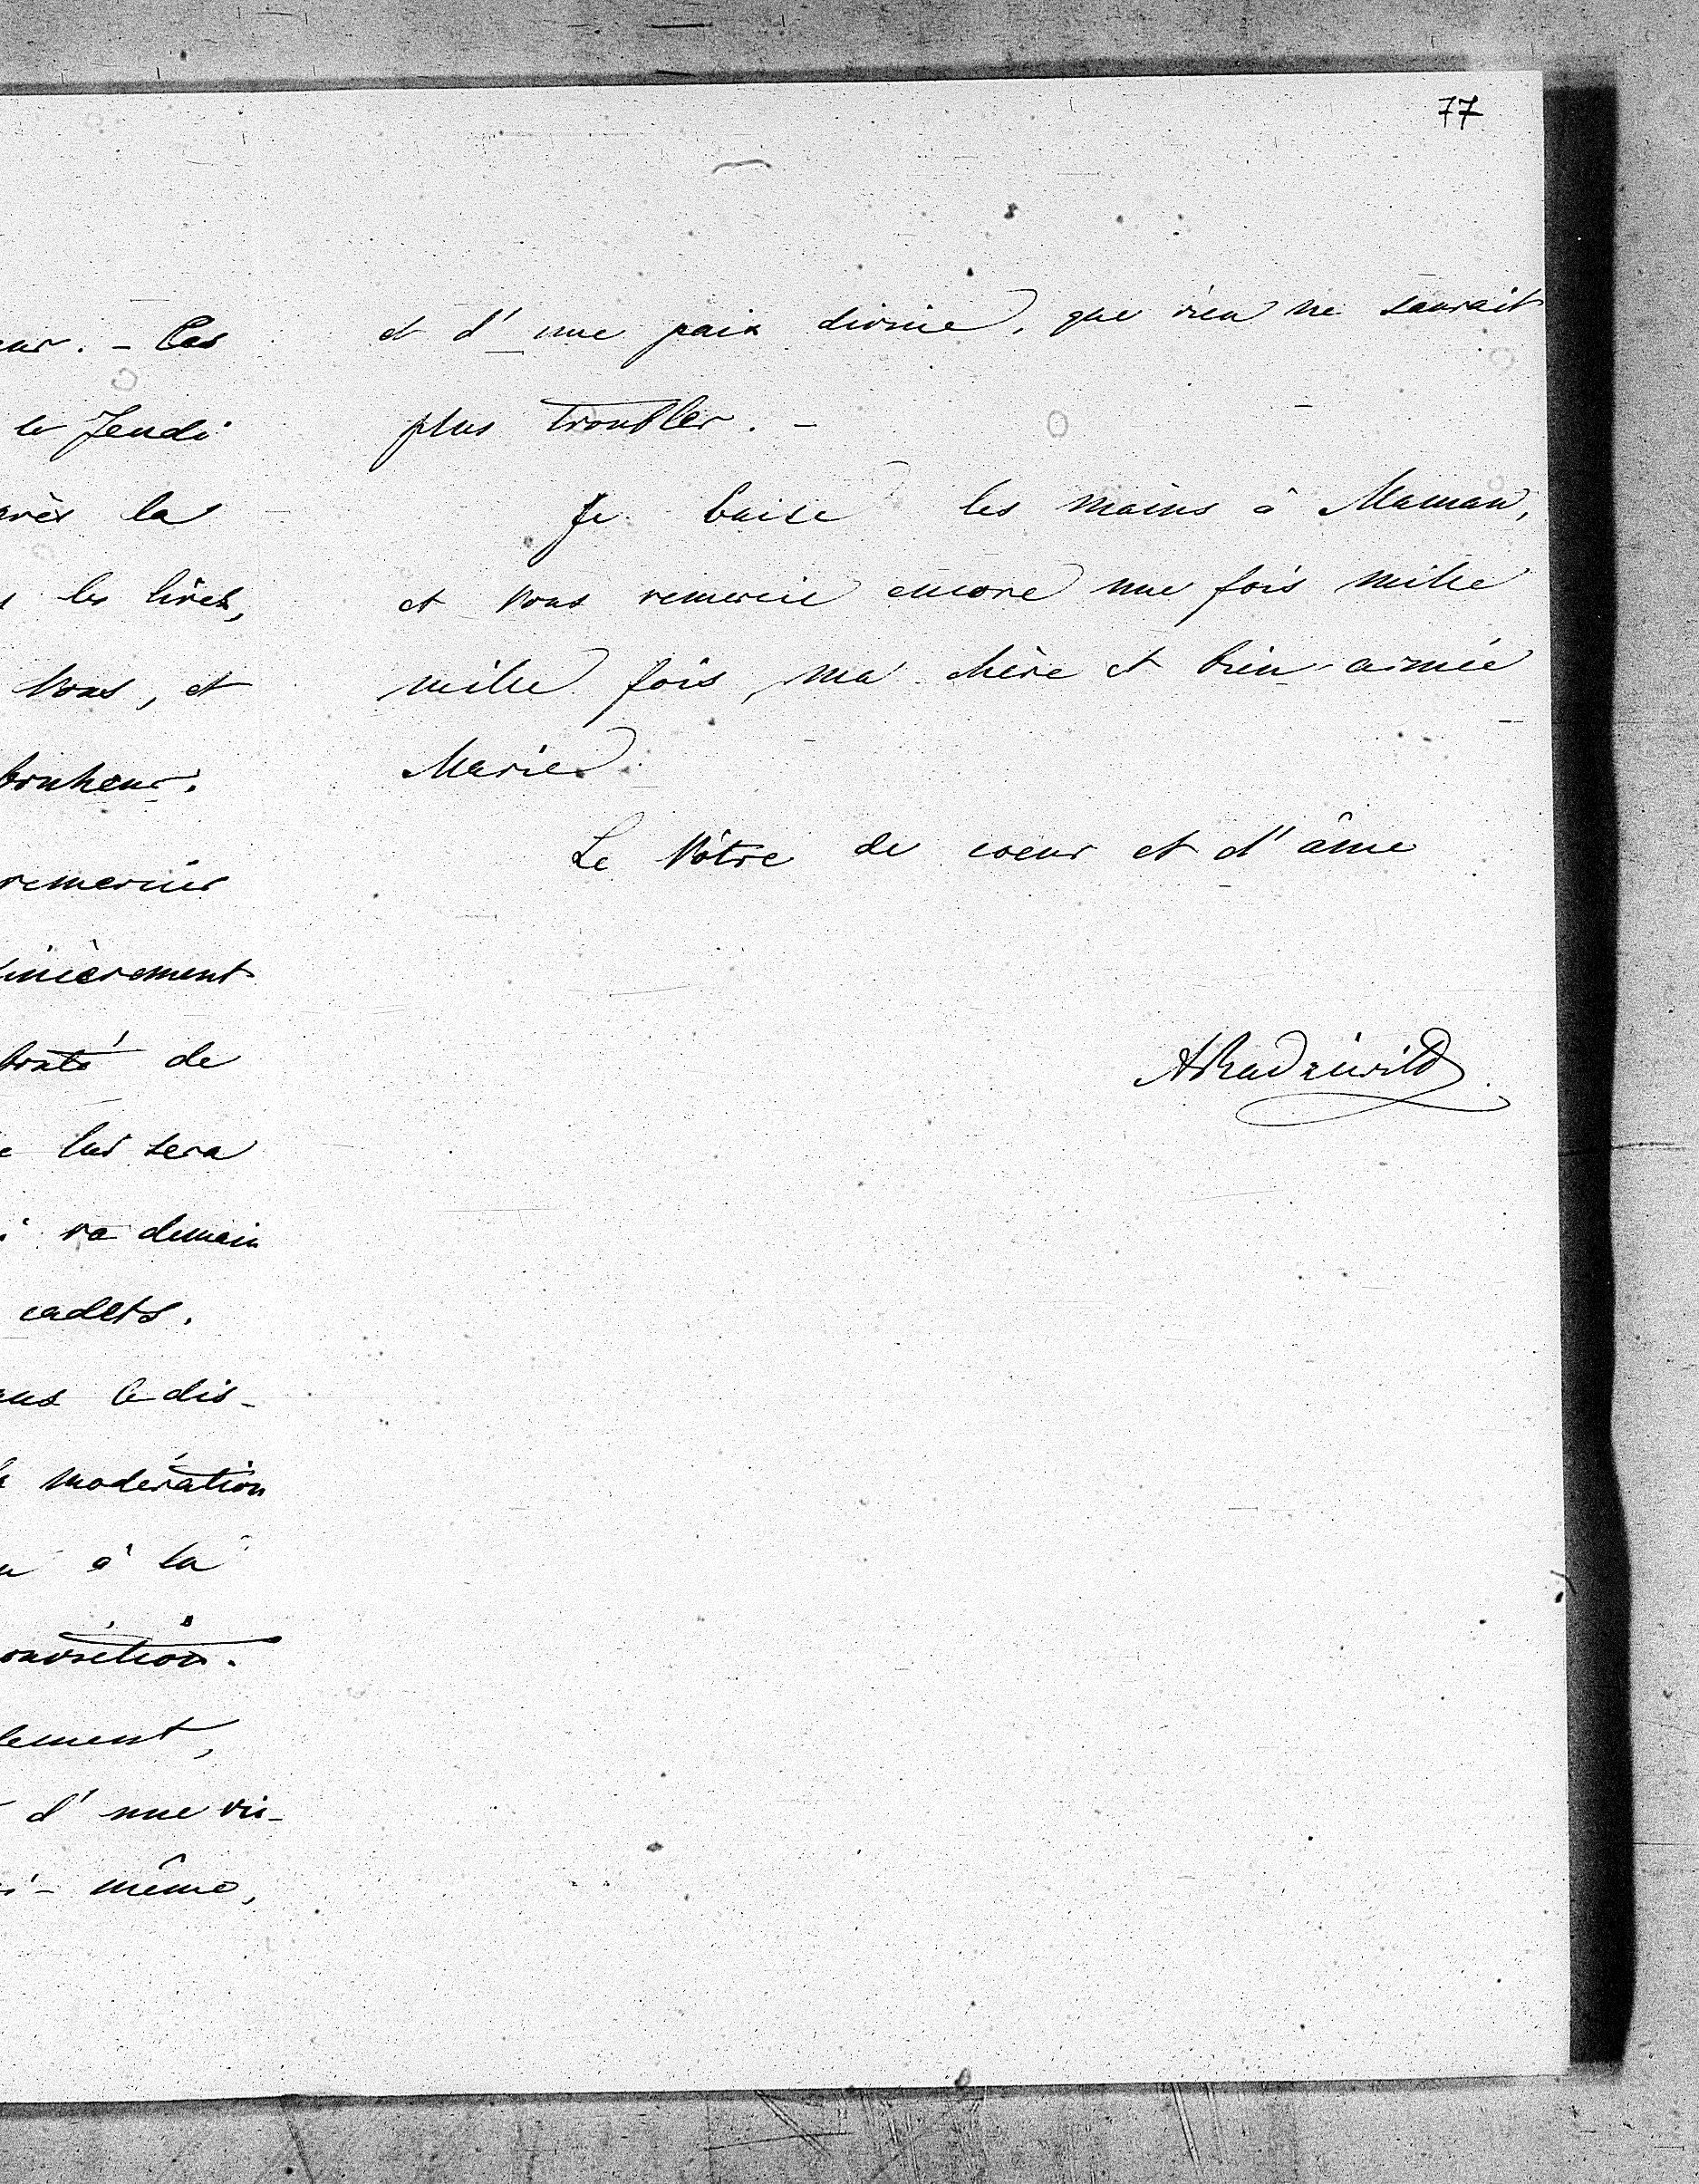 77
eur. - Ces
le Jeudi
près la
les lirez,
Vous, et
bonheur.
remercier
sincèrement
bonté de
lui sera
va demain
cadets.
le dis-
modération
à la
lement,
d'une vis-
- même,
et d'une paix divine, que rien ne saurait
plus troubler. -
Je baise les mains à Maman,
et Vous remercie encore une fois mille
mille fois, ma chère et bien-aimée
Marie.
Le Vôtre de coeur et d'âme
ARadziwill.